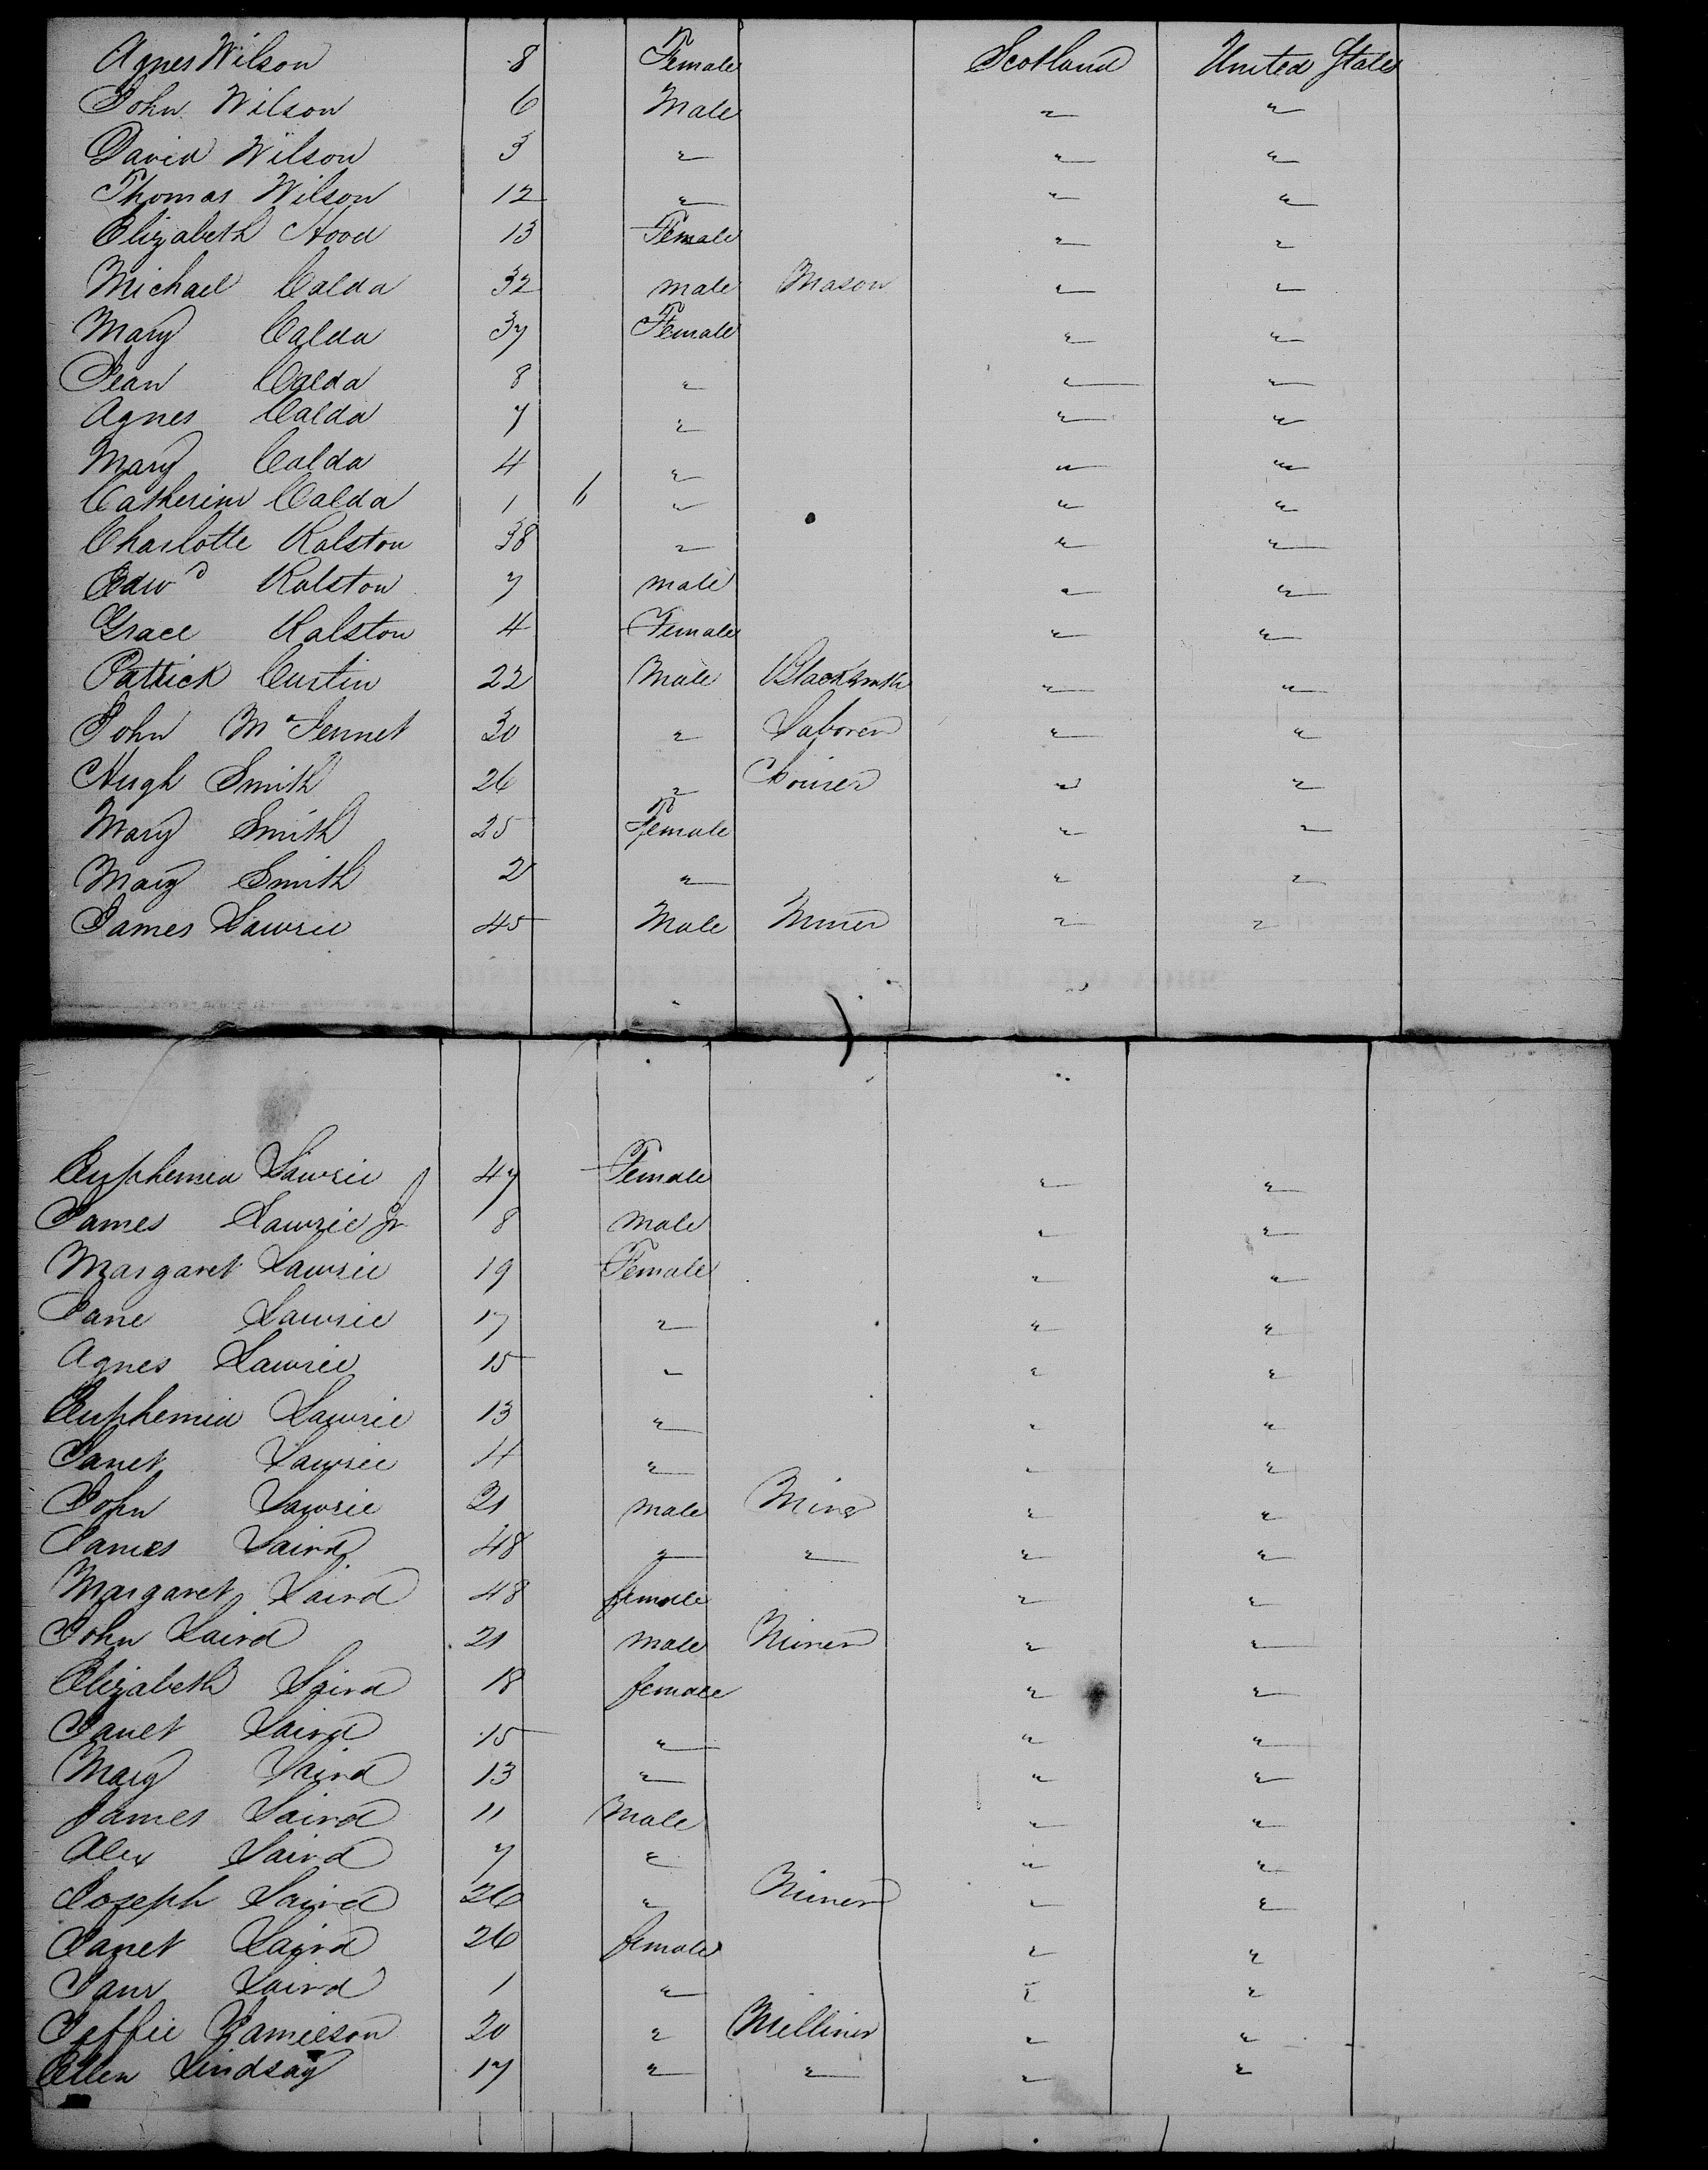 Agnes Wilson 8 Female Scotland United States
John Wilson 6 Male " "
David Wilson 3 " " "
Thomas Wilson 12 " " "
Elizabeth Hood 13 Female " "
Michael Calda 32 male Mason " "
Mary Calda 37 Female " "
Jean Calda 8 " " "
Agnes Calda 7 " " "
Mary Calda 4 " " "
Catherine Calda 1 6 " " "
Charlotte Ralston 38 " " "
Edwd Ralston 7 male " "
Grace Ralston 4 Female " "
Patrick Custin 22 Male Blacksmith " "
John Mc Jennet 30 " Laborer " "
Hugh Smith 26 " " "
Mary Smith 25 Female " "
Mary Smith 2 " " "
James Lawrie 45 Male Miner " "
Euphemia Lawrie 47 Female " "
James Lawrie Jr 8 male " "
Margaret Lawrie 19 Female " "
Jane Lawrie 17 " " "
Agnes Lawrie 15 " " "
Euphemia Lawrie 13 " " "
Janet Lawrie 11 " " "
John Lawrie 21 male Miner " "
James Laird 48 " " " "
Margaret Laird 48 female " "
John Laird 21 male Miner " "
Elizabeth Laird 18 female " "
Janet Laird 15 " " "
Mary Laird 13 " " "
James Laird 11 Male " "
Alex Laird 7 " " "
Joseph Laird 26 " Miner " "
Janet Laird 26 female " "
Jane Laird 1 " " "
Jeffie Jamieson 20 " Milliner " "
Ellen Lindsay 17 " " " "